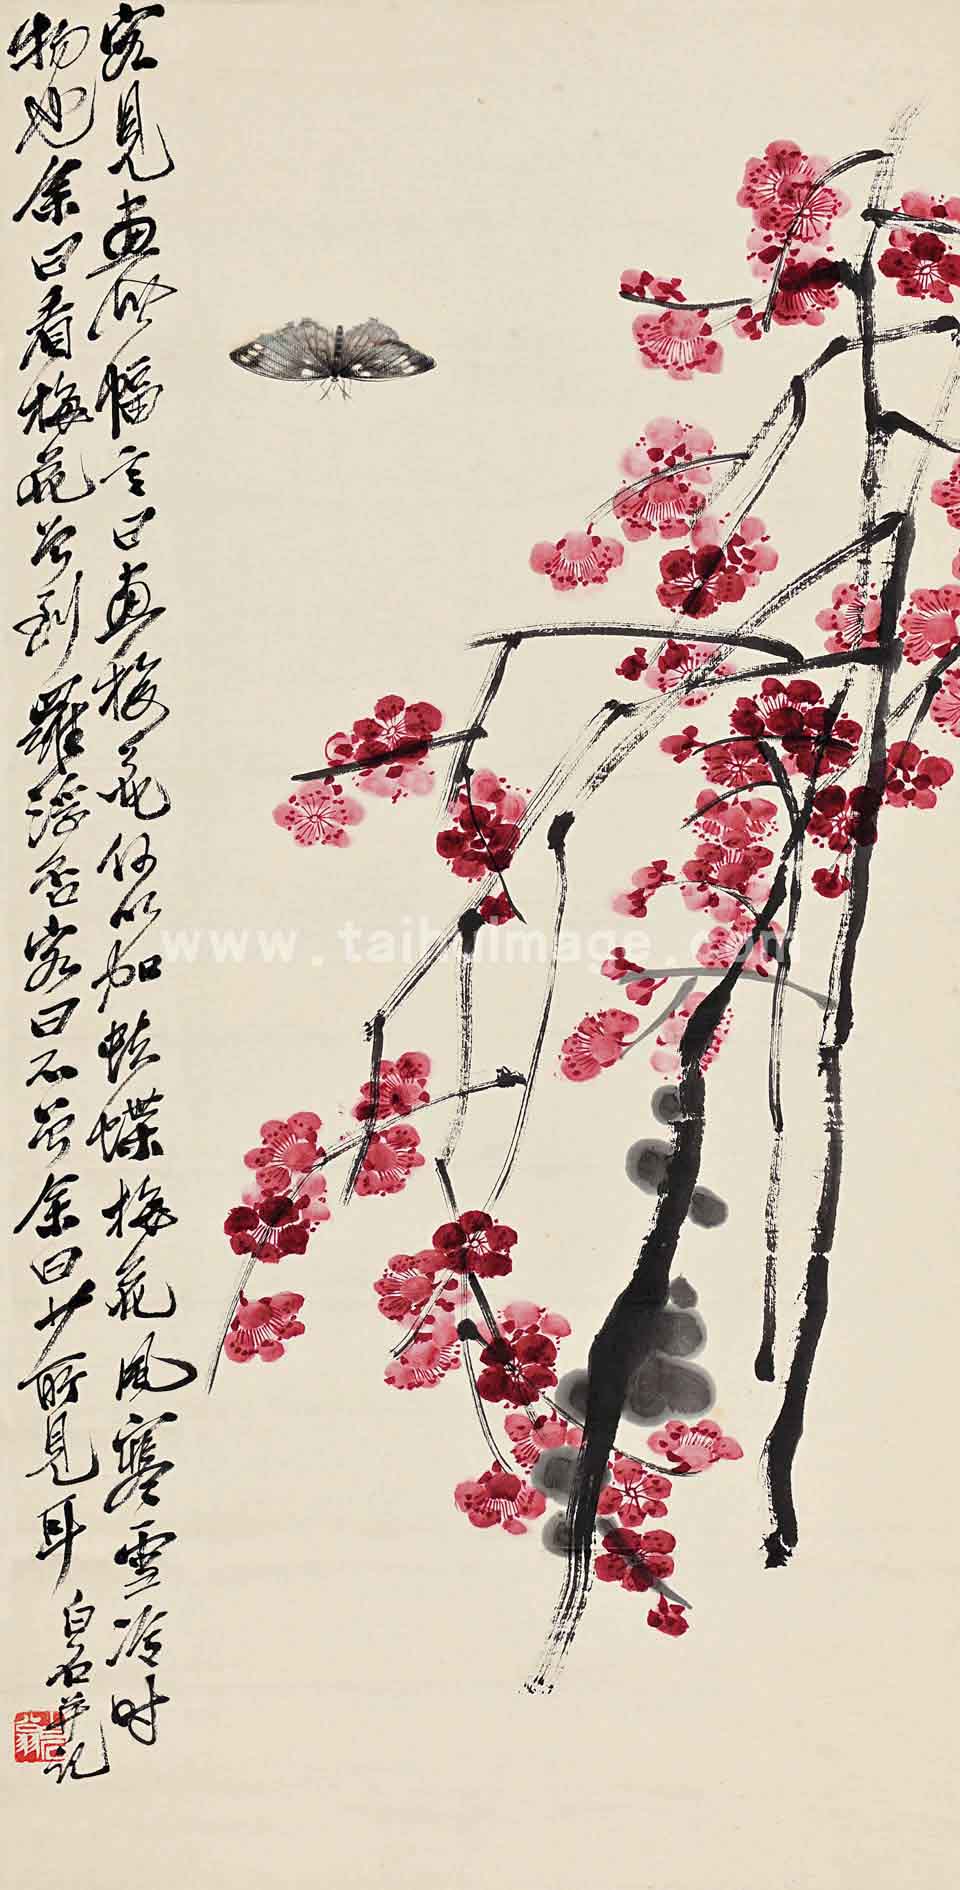 客見畫此幅言曰畫梅花何以加蛺蝶梅花風寒雪冷时
物也余曰看梅花曾到羅浮否客曰不曾余曰少所見耳
白石并記
www.taihuImage.com